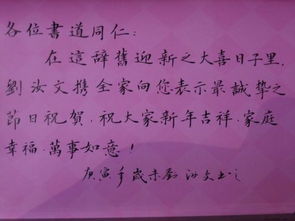 各位書道同仁:
在這辭舊迎新之大喜日子里,
劉汝文携全家向您表示最誠摯之
節日祝賀,祝大家新年吉祥,家庭
幸福,萬事如意!
庚寅年歲末劉汝文